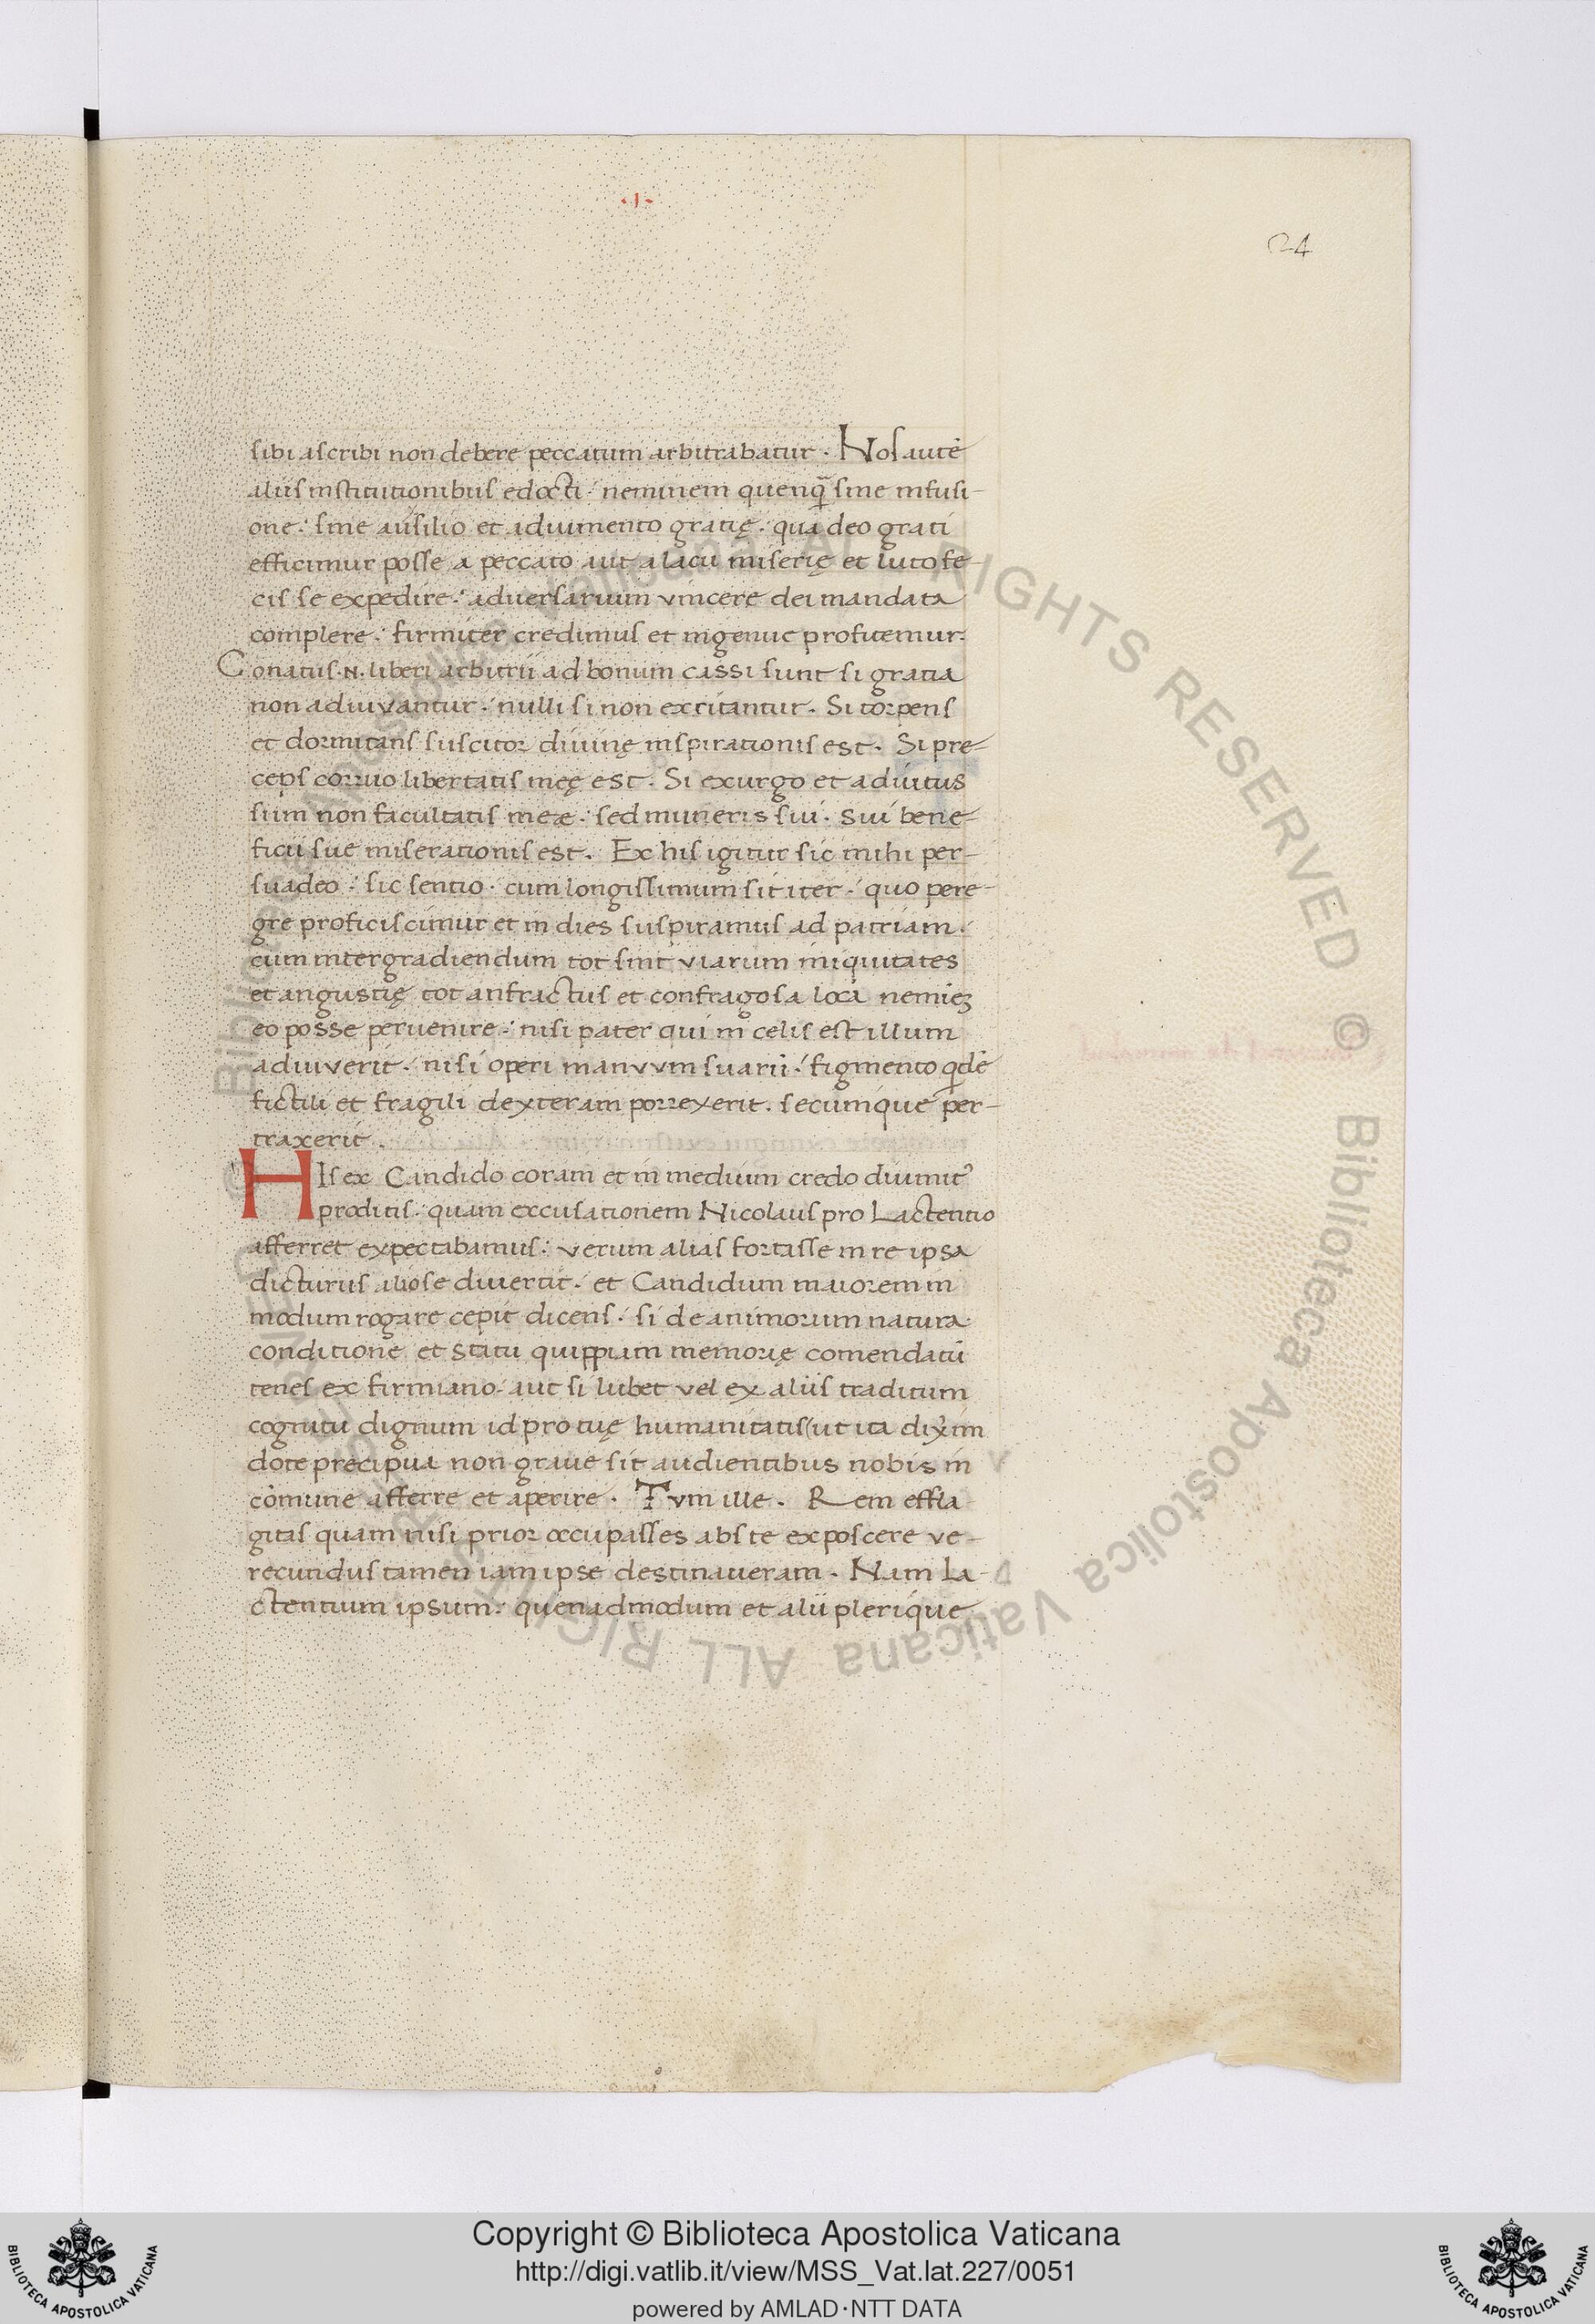 ·I·
24
sibi ascribi non debere peccatum arbitrabatur. Nos autē
aliis institutionibus edocti: neminem quenq̄ sine infusi-
one: sine ausilio et adiumento gratię: qua deo grati
efficimur posse a peccato aut a lacu miserię et luto fe-
cis se expedire: adversarium vincere dei mandata
complere: firmiter credimus et ingenue profitemur:
Conatus .N. liberi arbitrii ad bonum cassi sunt si gratia
non adiuvantur: nulli si non excitantur. Si torpens
et dormitans suscitor divinę inspirationis est. Si pre-
ceps corruo libertatis meę est. Si exurgo et adiutus
sum non facultatis meæ: sed muneris sui. sui bene-
ficii sue miserationis est. Ex his igitur sic mihi per-
suadeo: sic sentio. cum longissimum sit iter: quo pere-
gre proficiscimur et in dies suspiramus ad patriam:
cum intergradiendum tot sint viarum iniquitates
et angustię tot anfractus et confragosa loca neminē
eo posse pervenire: nisi pater qui in celis est illum
adiuverit: nisi operi manuum suarū: figmento qdē
fictili et fragili dexteram porrexerit. secumque per-
traxerit.
HIs ex Candido coram et in medium credo divinit᾽
proditis: quam excusationem Nicolaus pro Lactentio
afferret expectabamus: verum alias fortasse in re ipsa
dicturus alio se divertit: et Candidum maiorem in
modum rogare cepit dicens: si de animorum natura
conditione et statu quippiam memorię comendatū
tenes ex firmiano: aut si lubet vel ex aliis traditum
cognitu dignum id pro tuę humanitatis (ut ita dixim
dote precipua non grave sit audientibus nobis in
cōmune afferre et aperire. Tum ille. Rem effla
gitas quam nisi prior occupasses abs te exposcere ve-
recundus tamen iam ipse destinaveram. Nam La-
ctentium ipsum: quenadmodum et alii plerique
Biblioteca Apostolica Vaticana ALL RIGHTS RESERVED © Biblioteca Apostolica Vaticana ALL RIGHTS RESERVED ©
Copyright © Biblioteca Apostolica Vaticana
http://digi.vatlib.it/view/MSS_Vat.lat.227/0051
powered by AMLAD·NTT DATA
BIBLIOTECA APOSTOLICA VATICANA
BIBLIOTECA APOSTOLICA VATICANA